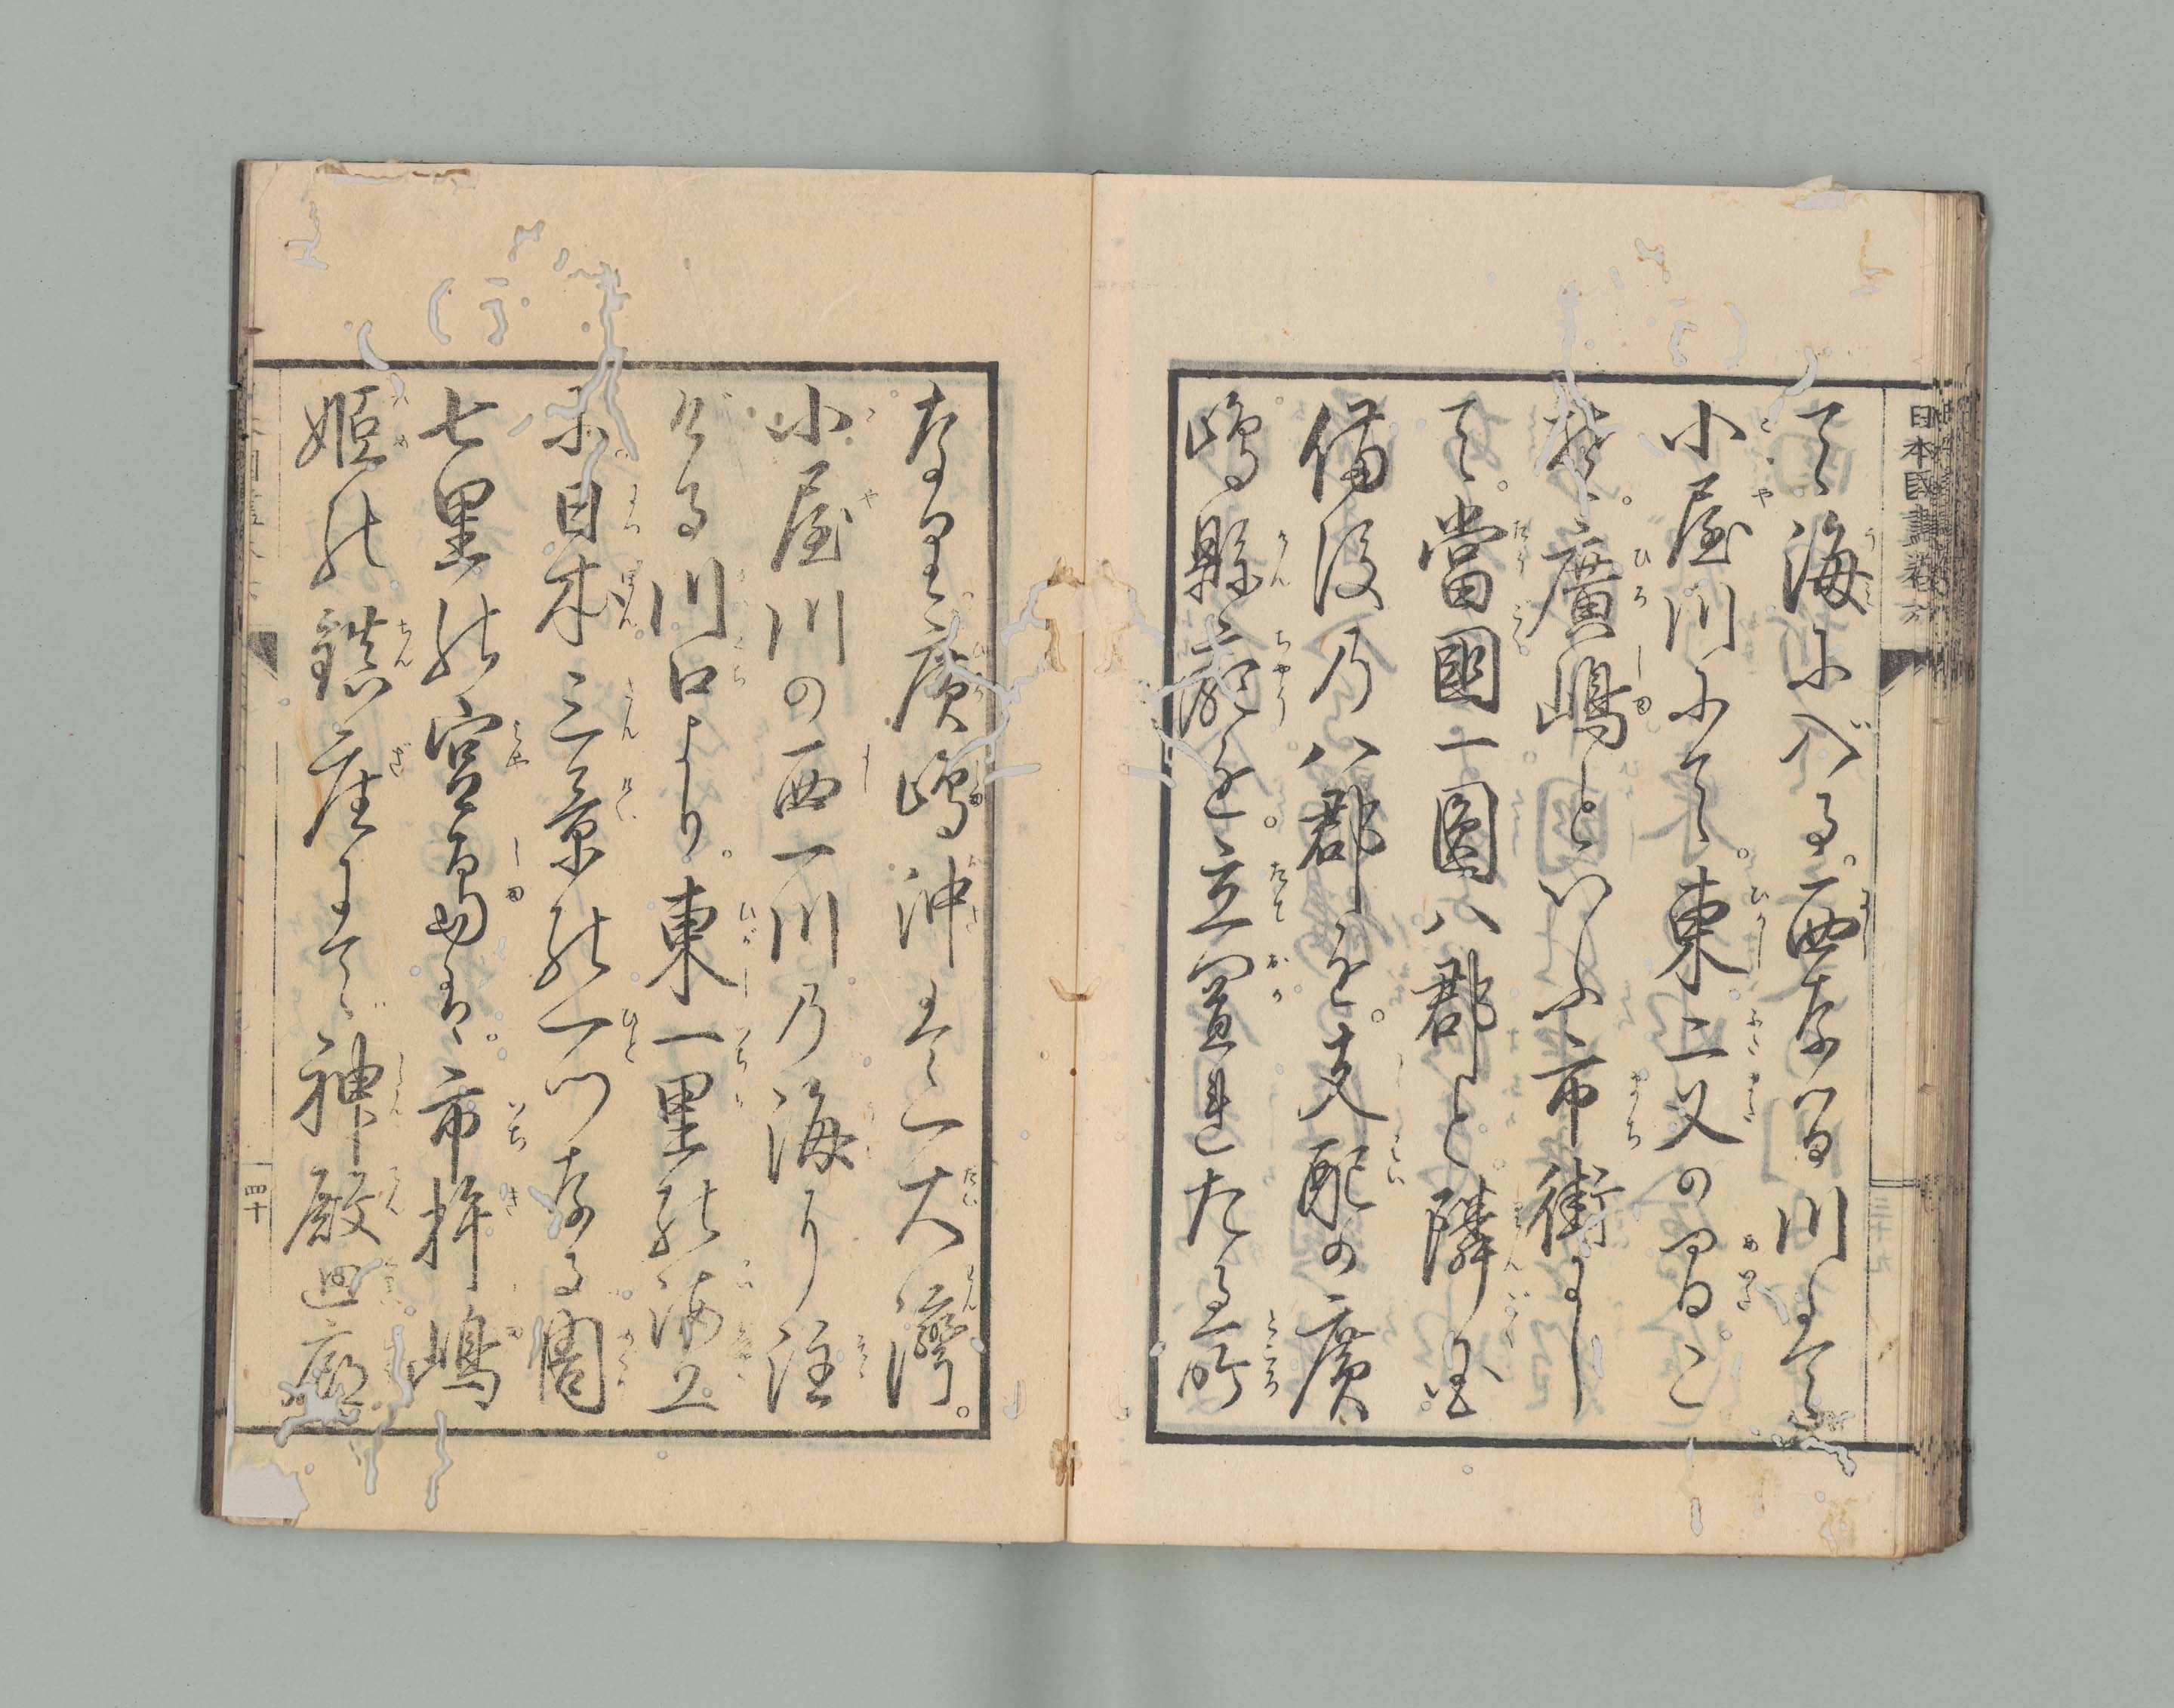 て海に入る。西なる川にて
小屋川にて。東二又の間こ
そ。廣嶋といふ市街にし
て。當國一圓八郡と。隣国
備後乃八郡を。支配の廣
嶋縣廳を。立置れたる所
なり。廣嶋沖はて一大灣。
小屋川の西一川乃海に注
げる川口より。東一里の海上
に日本三景の一つなる周
七里の宮島は。市杵嶋
姫の鎮座にて。神殿廻廊
日本國盡卷六
四十